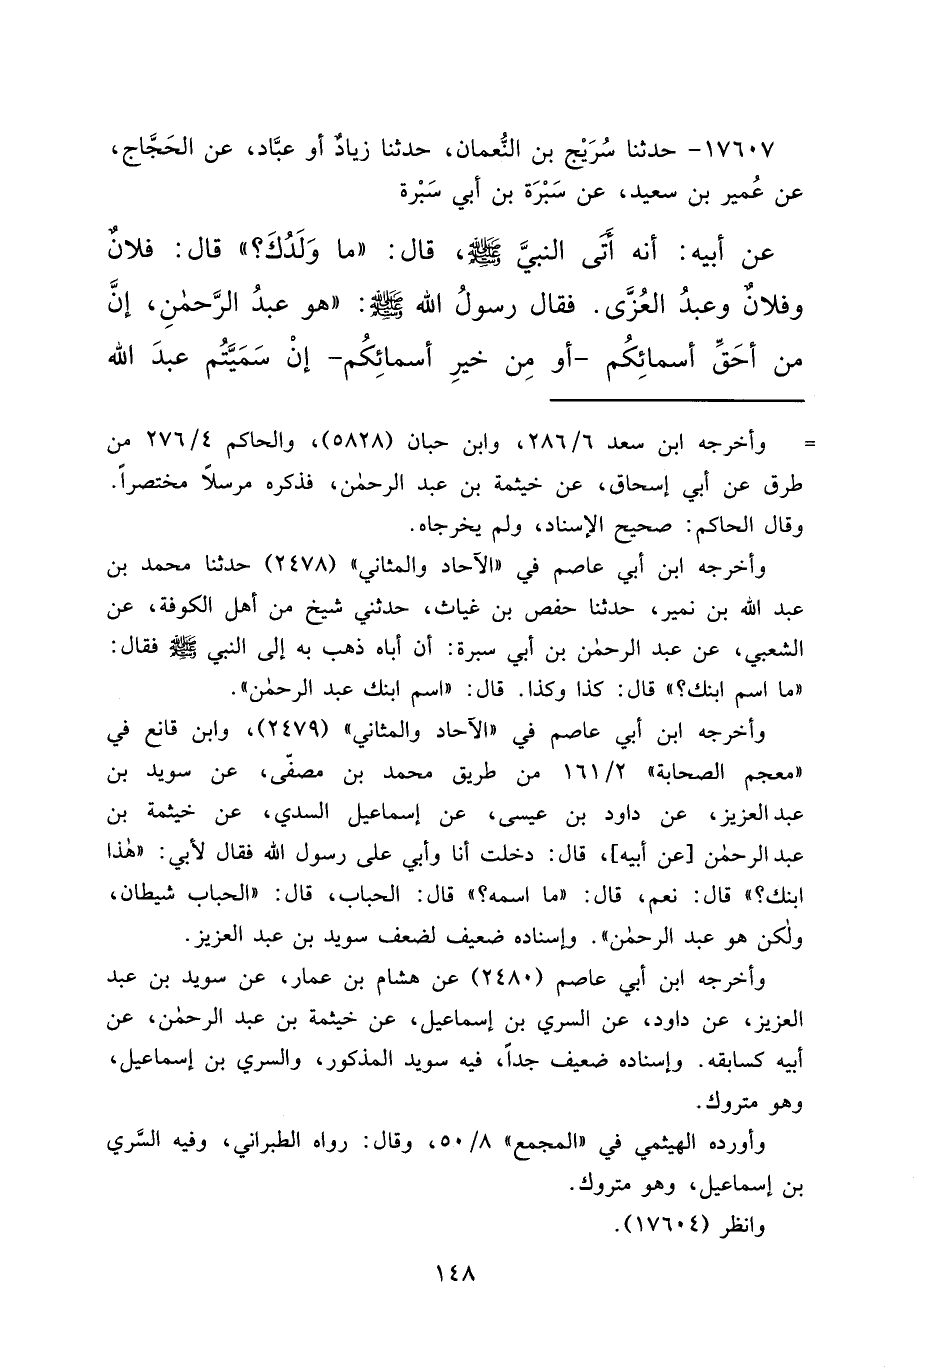 ١٧٦٠٧- حدثنا سُرَيْج بن النُّعمان، حدثنا زيادٌ أو عبَّاد، عن الحَجَّاج،
عن عُمير بن سعيد، عن سَبْرَة بن أبي سَبْرة
عن أبيه: أنه أَتَى النبيَّ ﷺ، قال: «ما وَلَدُكَ؟» قال: فلانٌ
وفلانٌ وعبدُ العُزَّى. فقال رسولُ الله ﷺ: «هو عبدُ الرَّحمٰنِ، إنَّ
من أحَقِّ أسمائِكُم -أو مِن خيرِ أسمائِكُم- إنْ سَمَيَّتُم عبدَ الله
= وأخرجه ابن سعد ٢٨٦/٦، وابن حبان (٥٨٢٨)، والحاكم ٢٧٦/٤ من
طرق عن أبي إسحاق، عن خيثمة بن عبد الرحمٰن، فذكره مرسلاً مختصراً.
وقال الحاكم: صحيح الإسناد، ولم يخرجاه.
وأخرجه ابن أبي عاصم في «الآحاد والمثاني» (٢٤٧٨) حدثنا محمد بن
عبد الله بن نمير، حدثنا حفص بن غياث، حدثني شيخ من أهل الكوفة، عن
الشعبي، عن عبد الرحمٰن بن أبي سبرة: أن أباه ذهب به إلى النبي ﷺ فقال:
«ما اسم ابنك؟» قال: كذا وكذا. قال: «اسم ابنك عبد الرحمٰن».
وأخرجه ابن أبي عاصم في «الآحاد والمثاني» (٢٤٧٩)، وابن قانع في
«معجم الصحابة» ١٦١/٢ من طريق محمد بن مصفّى، عن سويد بن
عبدالعزيز، عن داود بن عيسى، عن إسماعيل السدي، عن خيثمة بن
عبدالرحمٰن [عن أبيه]، قال: دخلت أنا وأبي على رسول الله فقال لأبي: «هٰذا
ابنك؟» قال: نعم، قال: «ما اسمه؟» قال: الحباب، قال: «الحباب شيطان،
ولٰكن هو عبد الرحمٰن». وإسناده ضعيف لضعف سويد بن عبد العزيز.
وأخرجه ابن أبي عاصم (٢٤٨٠) عن هشام بن عمار، عن سويد بن عبد
العزيز، عن داود، عن السري بن إسماعيل، عن خيثمة بن عبد الرحمٰن، عن
أبيه كسابقه. وإسناده ضعيف جداً، فيه سويد المذكور، والسري بن إسماعيل،
وهو متروك.
وأورده الهيثمي في «المجمع» ٥٠/٨، وقال: رواه الطبراني، وفيه السَّري
بن إسماعيل، وهو متروك.
وانظر (١٧٦٠٤).
١٤٨